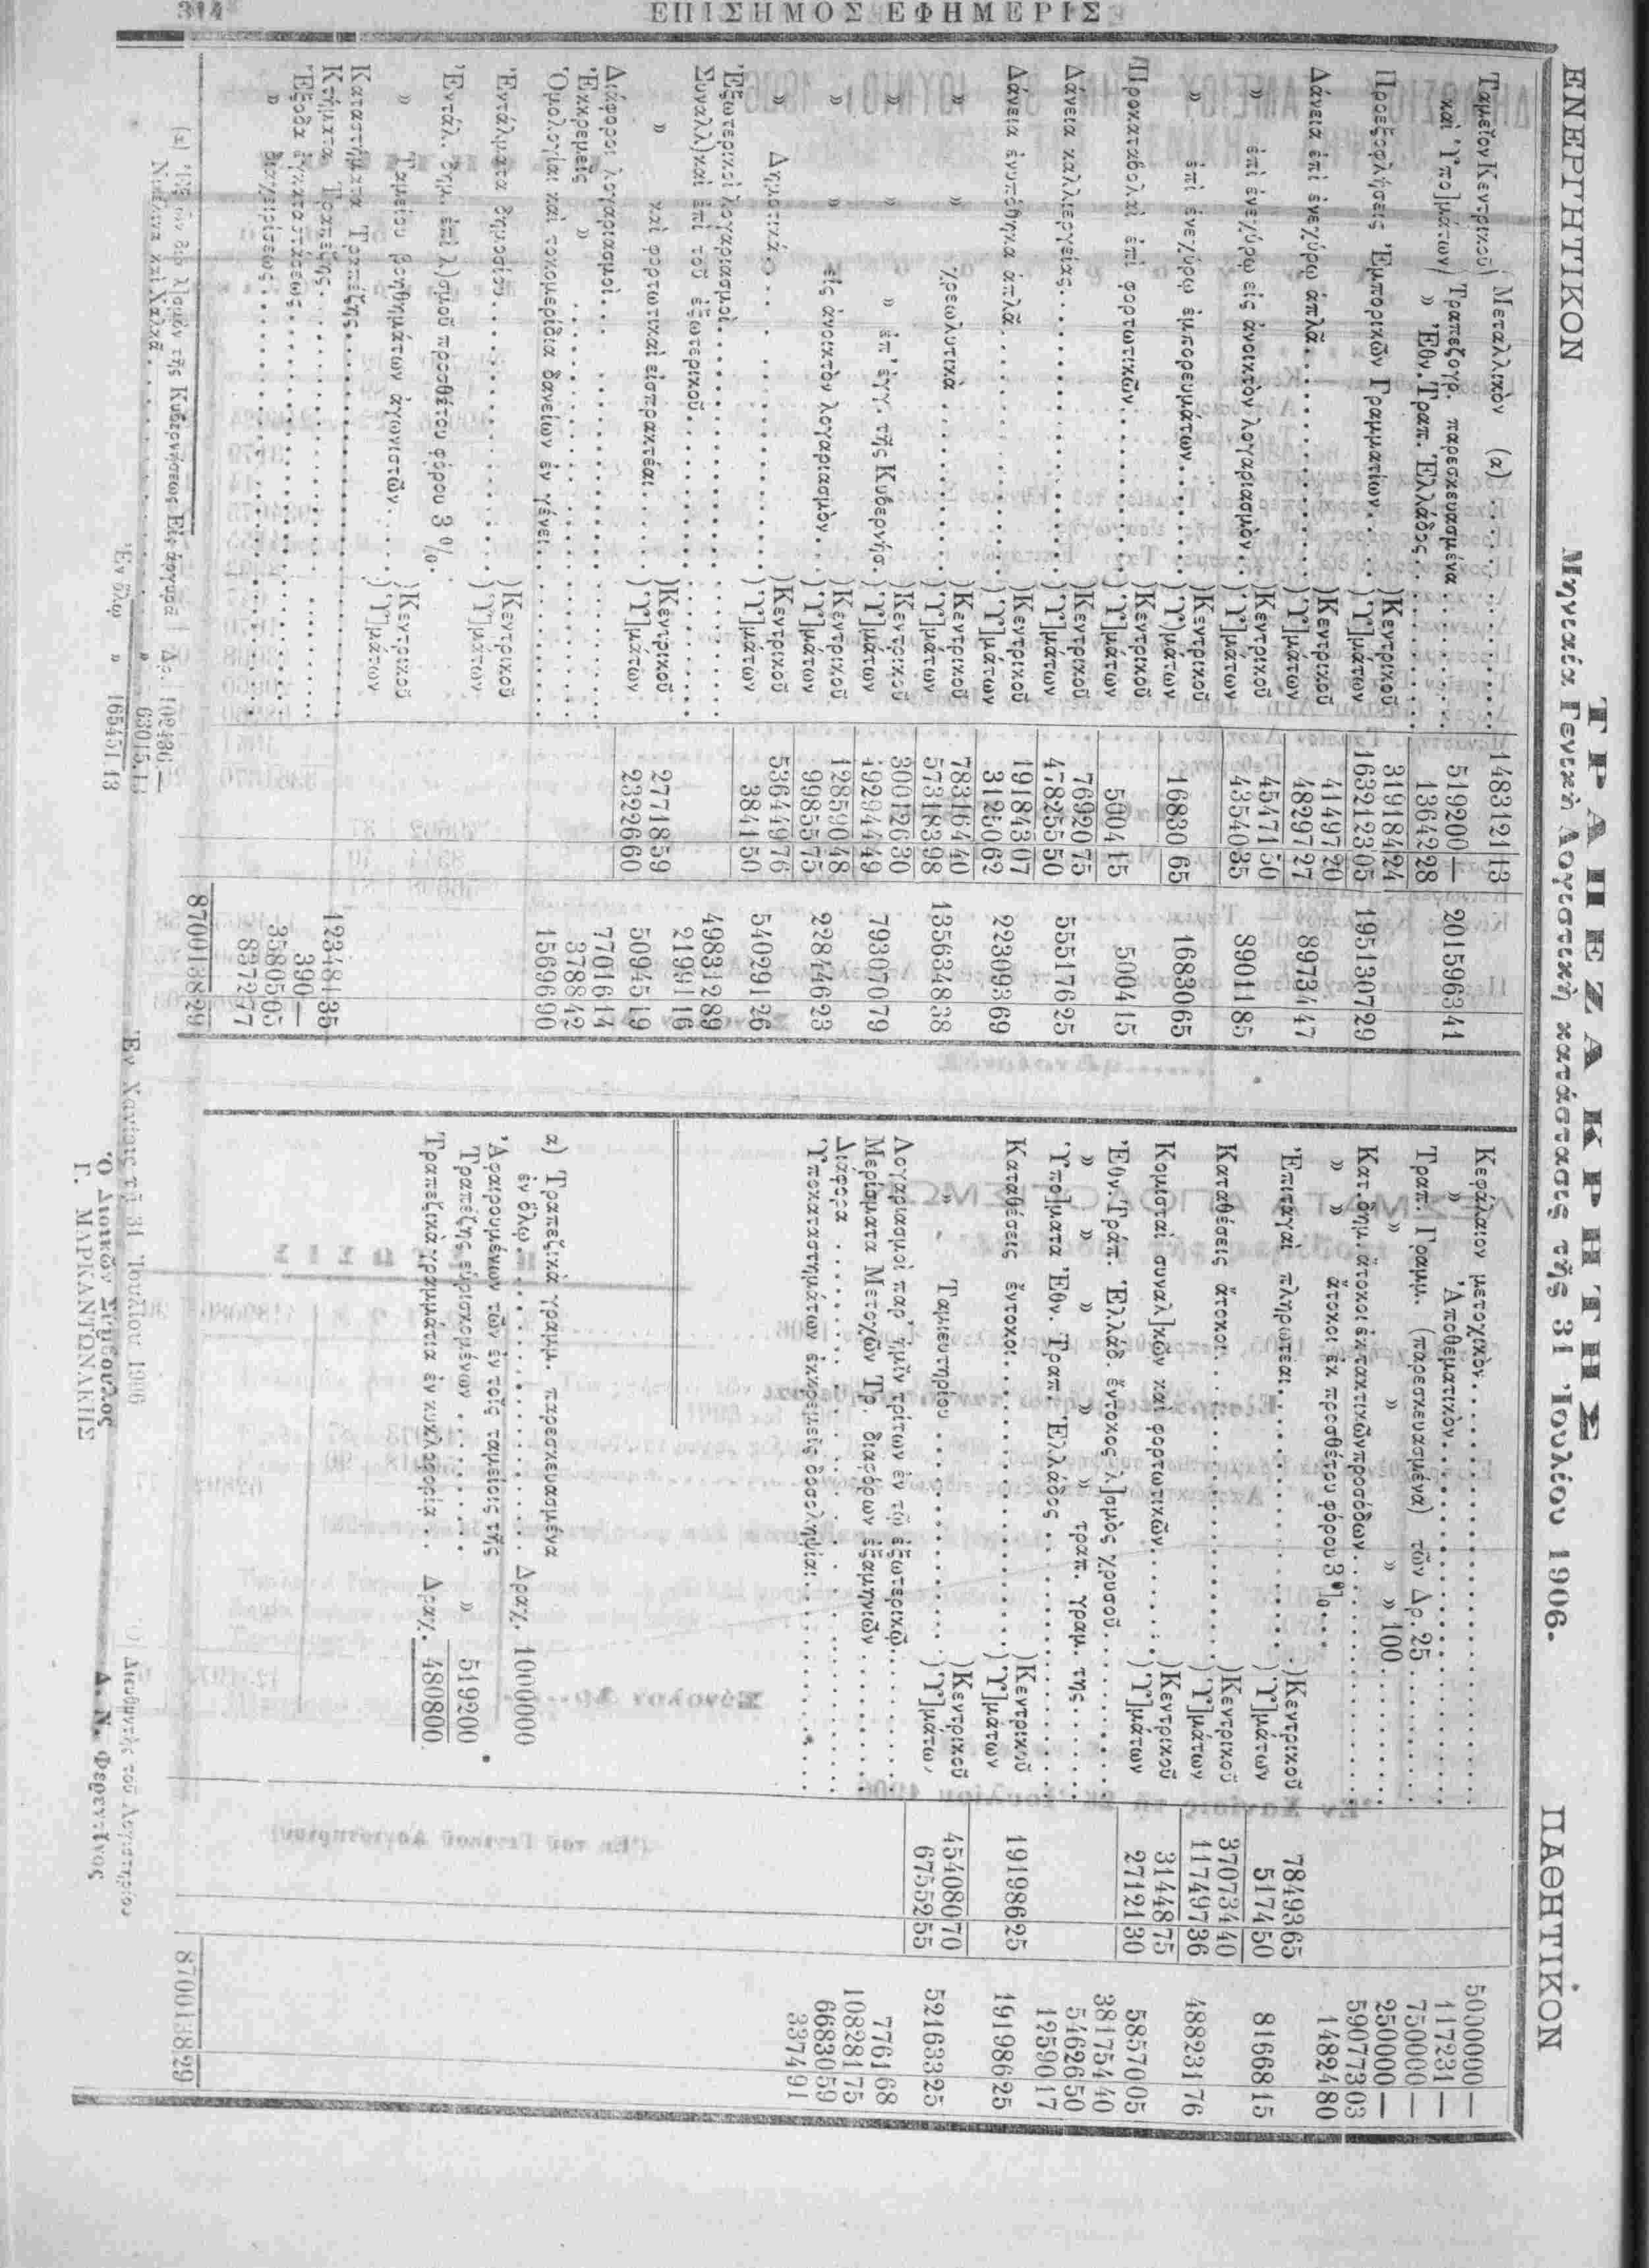 314
ΕΠΙΣΗΜΟΣ ΕΦΗΜΕΡΙΣ
ΤΡΑΠΕΖΑ ΚΡΗΤΗΣ
ΕΝΕΡΓΗΤΙΚΟΝ Μηνιαία Γενικὴ Λογιστικὴ κατάστασις τῆς 31 Ἰουλίου 1906. ΠΑΘΗΤΙΚΟΝ
Ταμεῖον Κεντρικοῦ) Μεταλλικὸν (α) . . . 1483121 13
καὶ Ὑπο]μάτων) Τραπεζογρ. παρεσκευασμένα . . . 519200 — 2015963 41
» Ἐθν. Τραπ. Ἑλλάδος . . . 13642 28
Προεξοφλήσεις Ἐμπορικῶν Γραμματίων . . . )Κεντρικοῦ 319184 24
)Ὑ]μάτων 1632123 05 1951307 29
Δάνεια ἐπὶ ἐνεχύρῳ ἁπλᾶ . . . )Κεντρικοῦ 41497 20
)Ὑ]μάτων 48297 27 89734 47
» ἐπὶ ἐνεχύρῳ εἰς ἀνοικτὸν λογαριασμὸν . )Κεντρικοῦ 45471 50
)Ὑ]μάτων 43540 35 89011 85
» ἐπὶ ἐνεχύρῳ ἐμπορευμάτων . . . )Κεντρικοῦ
)Ὑ]μάτων 16830 65 16830 65
Προκαταβολαὶ ἐπὶ φορτωτικῶν . . . )Κεντρικοῦ
)Ὑ]μάτων 5004 15 5004 15
Δάνεια καλλιεργείας . . . )Κεντρικοῦ 76920 75
)Ὑ]μάτων 478255 50 555176 25
Δάνεια ἐνυπόθηκα ἁπλᾶ . . . )Κεντρικοῦ 191843 07
)Ὑ]μάτων 31250 62 223093 69
» » χρεωλυτικὰ . . . )Κεντρικοῦ 783164 40
)Ὑ]μάτων 573183 98 1356348 38
» » » ἐπ' ἐγγ. τῆς Κυβερνήσ. )Κεντρικοῦ 300126 30
)Ὑ]μάτων 492944 49 793070 79
» » εἰς ἀνοικτὸν λογαριασμὸν . . )Κεντρικοῦ 128590 48
)Ὑ]μάτων 99855 75 228446 23
» Δημοτικὰ . . . )Κεντρικοῦ 536449 76
)Ὑ]μάτων 3841 50 540291 26
Ἐξωτερικοὶ λογαριασμοὶ . . . 498312 89
Συναλλ)καὶ ἐπὶ τοῦ ἐξωτερικοῦ . . . 21991 16
» καὶ φορτωτικαὶ εἰσπρακτέαι . . . )Κεντρικοῦ 27718 59
)Ὑ]μάτων 23226 60 50945 19
Διάφοροι λογαριασμοὶ . . . 77016 14
Ἐκκρεμεῖς » . . . 3788 42
Ὁμολογίαι καὶ τοκομερίδια δανείων ἐν γένει . . . 15696 90
Ἐντάλματα δημοσίου . . . )Κεντρικοῦ
)Ὑ]μάτων
Ἐντάλ. δημ. ἐπὶ λ)σμοῦ προσθέτου φόρου 3 %.
» Ταμείου βοηθημάτων ἀγωνιστῶν . . . )Κεντρικοῦ
)Ὑ]μάτων
Καταστήματα Τραπέζης . . .
Κτήματα Τραπέζης . . . 123481 35
Ἔξοδα ἐγκαταστάσεως . . . 390 —
35805 05
» διαχειρίσεως . . . 8372 77
8700138 29
(α) Ἐξ ὧν διὰ λ]σμὸν τῆς Κυβερνήσεως Εἰς ἀργυρᾶ Δρ. 102436 —
Νικέλινα καὶ Χαλκᾶ . . . » 63015.13
Ἐν ὅλῳ » 165451 13
Κεφάλαιον μετοχικὸν . . . 5000000 —
» Ἀποθεματικὸν . . . 117231 —
Τραπ. Γραμμ. (παρεσκευασμένα) τῶν Δρ. 25 . . . 750000 —
» » » » » 100 . . . 250000 —
Κατ. δημ. ἄτοκοι ἐκ τακτικῶν προσόδων . . . 590773 03
» » ἄτοκοι ἐκ προσθέτου φόρου 3 % . . . 14824 80
Ἐπιταγαὶ πληρωτέαι . . . )Κεντρικοῦ 78493 65
)Ὑ]μάτων 5174 50 81668 15
Καταθέσεις ἄτοκοι . . . )Κεντρικοῦ 370734 40
)Ὑ]μάτων 117497 36 488231 76
Κομισταὶ συναλ]κῶν καὶ φορτωτικῶν . . . )Κεντρικοῦ 31448 75
)Ὑ]μάτων 27121 30 58570 05
Ἐθν. Τράπ. Ἑλλάδ. ἔντοκος λ]σμὸς χρυσοῦ . . . 381754 40
» » » » » τραπ. γραμ. της . . . 54626 50
Ὑπο]ματα Ἐθν. Τραπ. Ἑλλάδος . . . 12590 17
Καταθέσεις ἔντοκοι . . . )Κεντρικοῦ 191986 25
)Ὑ]μάτων 191986 25
» Ταμιευτηρίου . . . )Κεντρικοῦ 454080 70
)Ὑ]μάτων 67552 55 521633 25
Λογαριασμοὶ παρ' ἡμῖν τρίτων ἐν τῷ ἐξωτερικῷ . . . 7761 68
Μερίσματα Μετοχῶν Τρ. διαφόρων ἑξαμηνιῶν . . . 108281 75
Διάφορα . . . 66830 59
Ὑποκαταστημάτων ἐκκρεμεῖς δοσοληψίαι . . . 3374 91
8700138 29
α) Τραπεζικὰ γραμμ. παρεσκευασμένα
ἐν ὅλῳ . . . Δραχ. 1000000
Ἀφαιρουμένων τῶν ἐν τοῖς ταμείοις τῆς
Τραπέζης εὑρισκομένων . . . » 519200
Τραπεζικὰ γραμμάτια ἐν κυκλοφορίᾳ . . Δραχ. 480800
Ἐν Χανίοις τῇ 31 Ἰουλίου 1906
Ὁ Διοικῶν Σύμβουλος
Γ. ΜΑΡΚΑΝΤΩΝΑΚΗΣ
Ὁ Διευθυντὴς τοῦ Λογιστηρίου
Δ. Ν. Φερεντῖνος